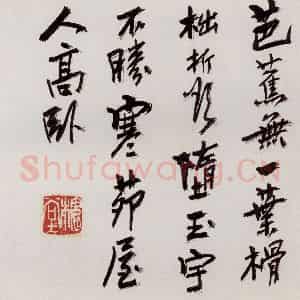 芭蕉無一葉榾
柮折欲墮玉宇
不勝寒茆屋
人高卧
Shufawang.cn